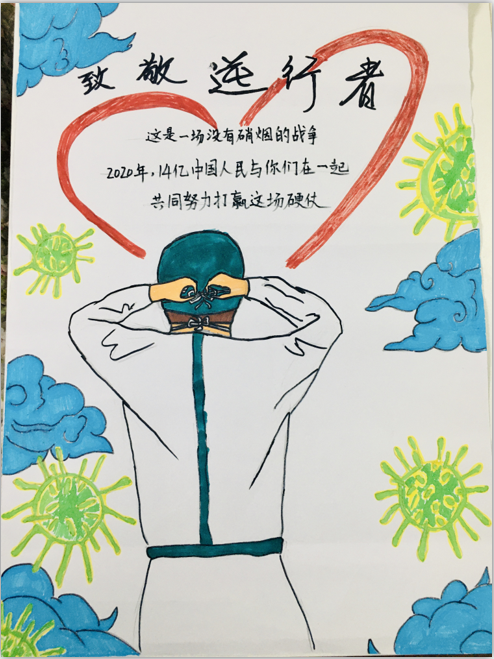 致敬逆行者
这是一场没有硝烟的战争
2020年,14亿中国人民与你们在一起
共同努力打赢这场硬仗